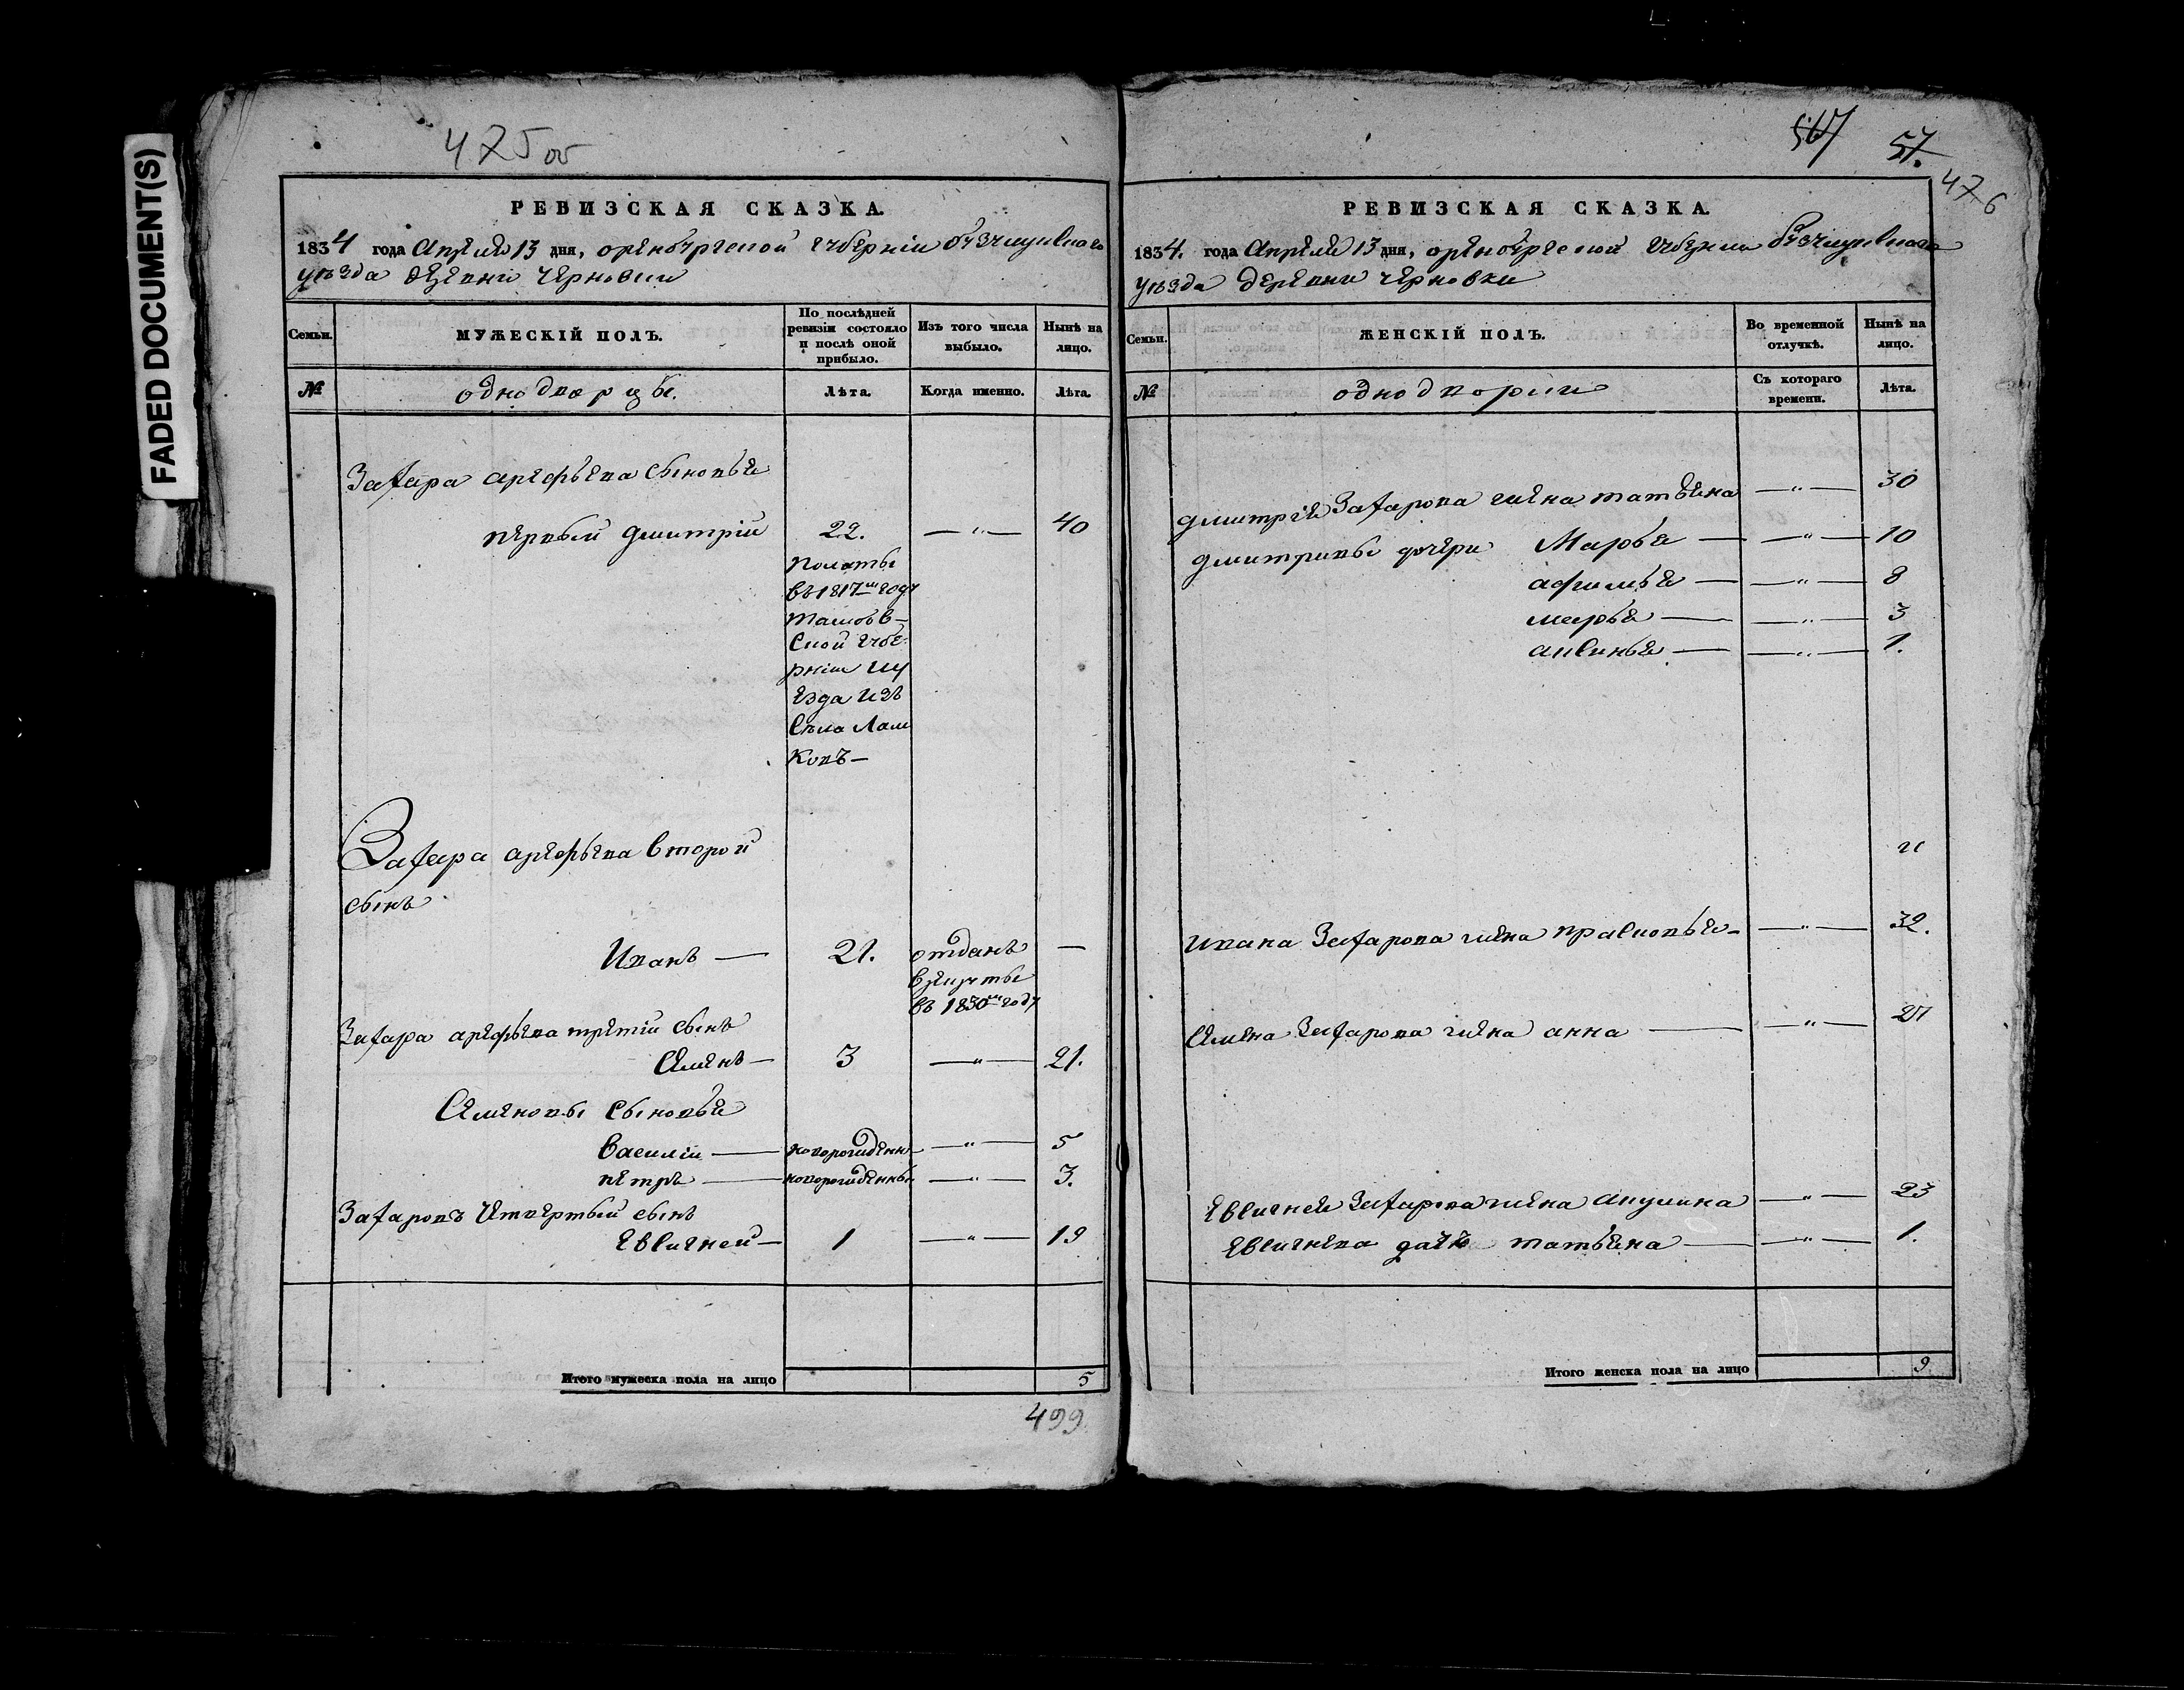 FADED DOCUMENT(S)
475 об
РЕВИЗСКАЯ СКАЗКА.
1834 года Апреля 13 дня, оренбургской губернии бузулуцкаго
уезда деревни черновки
Семьи. МУЖЕСКІЙ ПОЛЪ. По послѣдней ревизіи состояло и послѣ оной прибыло. Изъ того числа выбыло. Нынѣ на лицо.
№ однодворцы. Лѣта. Когда именно. Лѣта.
Захара арефьева сыновья
первый дмитрій 22. — " — 40
въ 1817м году
тамбов-
ской губе-
рніи
езда изъ
села Лам
ковъ —
Захара арефьева второй
сынъ
Иванъ — 21. отданъ —
в рекруты
въ 1830м году
Захара арефьева третій сынъ
Семенъ — 3 — " — 21.
Семеновы сыновья
василіи — новорожденны — " — 5
петръ — новорожденны — " — 3.
Захаровъ четвертый сынъ
Евсигней — 1 — " — 19
Итого мужеска пола на лицо 5
499
567 57.
476
РЕВИЗСКАЯ СКАЗКА.
1834. года Апреля 13 дня, оренбургской губерніи бузулуцкаго
уезда деревни черновки
Семьи. ЖЕНСКІЙ ПОЛЪ. Во временной отлучкѣ. Нынѣ на лицо.
№ однодворки Съ котораго времени. Лѣта.
дмитрея Захарова жена татьяна — " — 30
дмитривы дочери Марья — — " — 10
афимья — — " — 8
марья — — " — 3
аксинья — — " — 1.
Ивана Захарова жена прасковья — — " — 32.
Семена Захарова жена анна — — " — 27
Евсигнея Захарова жена акулина — " — 23
Евсигнева дочь татьяна — — " — 1.
Итого женска пола на лицо 9.